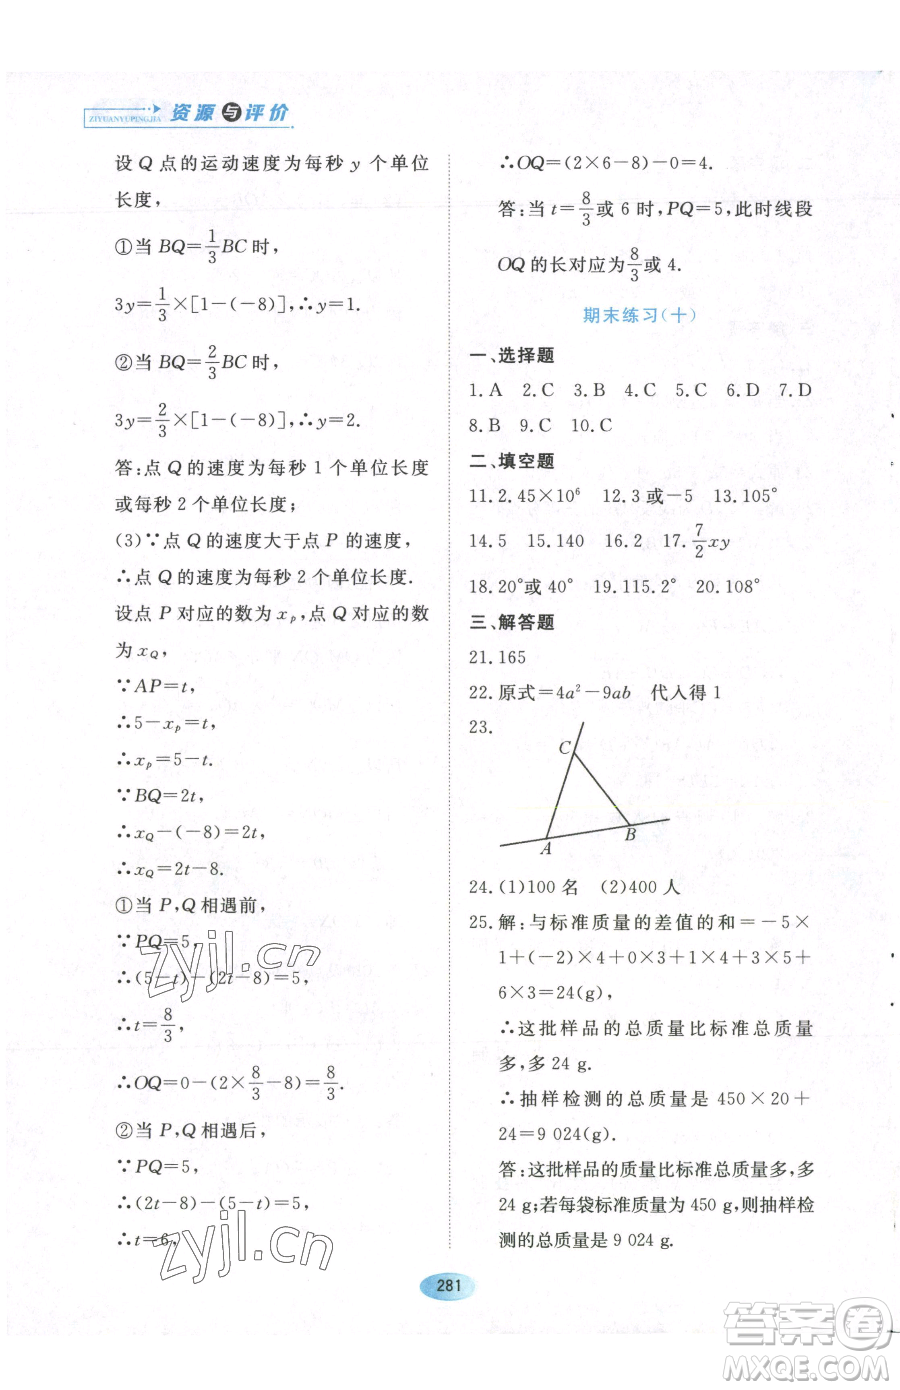 ZIYUANYUPINGJIA
资源与评价
设 Q 点的运动速度为每秒 y 个单位
长度，
①当 BQ=1/3 BC 时，
3y=1/3×[1-(-8)]，∴y=1.
②当 BQ=2/3 BC 时，
3y=2/3×[1-(-8)]，∴y=2.
答：点 Q 的速度为每秒 1 个单位长度
或每秒 2 个单位长度；
(3)∵点 Q 的速度大于点 P 的速度，
∴点 Q 的速度为每秒 2 个单位长度.
设点 P 对应的数为 xₚ，点 Q 对应的数
为 x_Q，
∵AP=t，
∴5-xₚ=t，
∴xₚ=5-t.
∵BQ=2t，
∴x_Q-(-8)=2t，
∴x_Q=2t-8.
①当 P，Q 相遇前，
∵PQ=5，
∴(5-t)-(2t-8)=5，
∴t=8/3，
∴OQ=0-(2×8/3-8)=8/3.
②当 P，Q 相遇后，
∵PQ=5，
∴(2t-8)-(5-t)=5，
∴t=6，
∴OQ=(2×6-8)-0=4.
答：当 t=8/3或 6 时，PQ=5，此时线段
OQ 的长对应为8/3或 4.
期末练习(十)
一、选择题
1.A 2.C 3.B 4.C 5.C 6.D 7.D
8.B 9.C 10.C
二、填空题
11.2.45×10⁶ 12.3 或-5 13.105°
14.5 15.140 16.2 17.7/2 xy
18.20°或 40° 19.115.2° 20.108°
三、解答题
21.165
22.原式=4a²-9ab 代入得 1
23.
C
A
B
24.(1)100 名 (2)400 人
25.解：与标准质量的差值的和=-5×
1+(-2)×4+0×3+1×4+3×5+
6×3=24(g)，
∴这批样品的总质量比标准总质量
多，多 24 g.
∴抽样检测的总质量是 450×20+
24=9 024(g).
答：这批样品的质量比标准总质量多，多
24 g；若每袋标准质量为 450 g，则抽样检
测的总质量是 9 024 g.
zyjl.cn
zyjl.cn
281
答案圈
MXQE.COM